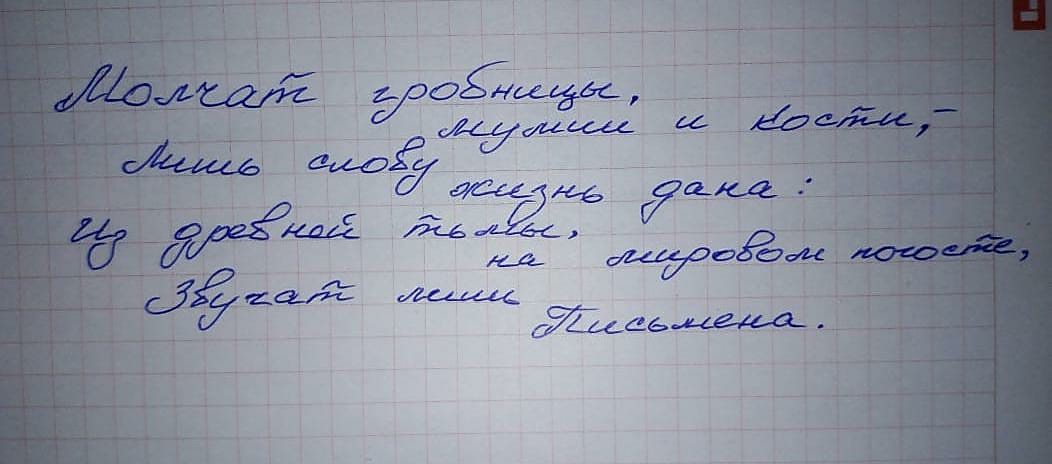 Молчат гробницы,
мумии и кости,-
Лишь слову
жизнь дана:
Из древней тьмы,
на мировом погосте,
Звучат лишь
Письмена.